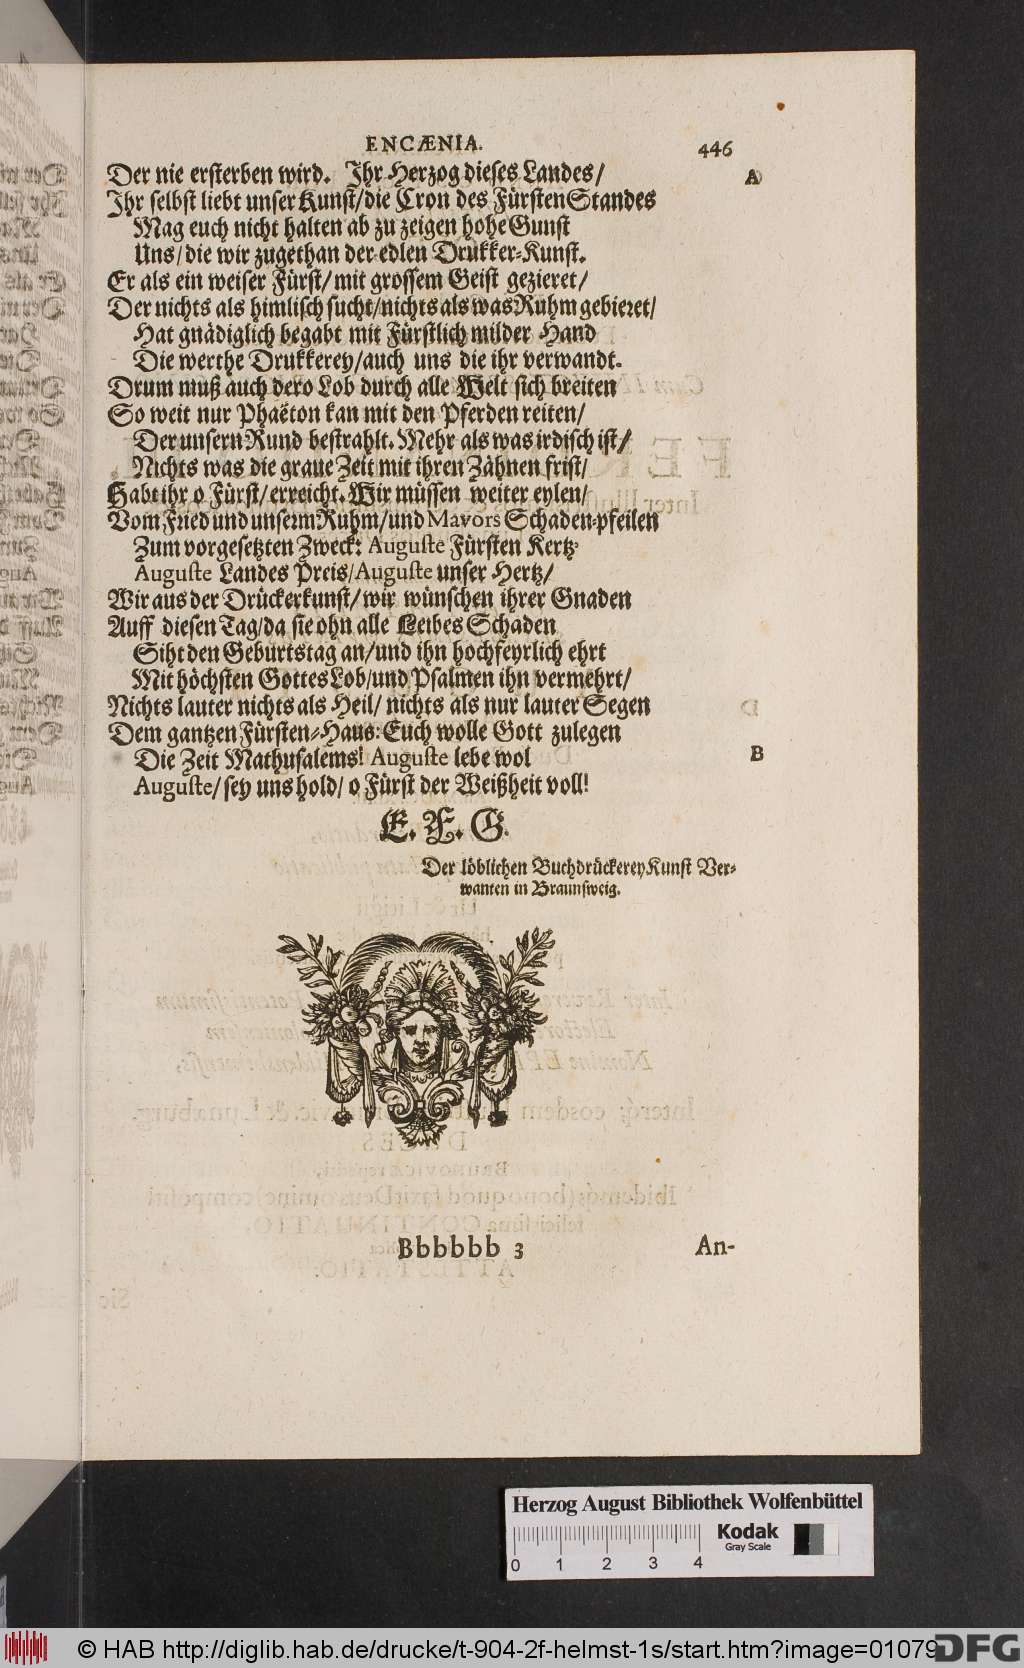 ENCÆNIA. 446
Der nie ersterben wird. Ihr Herzog dieses Landes/ A
Ihr selbst liebt unser Kunst/die Cron des Fürsten Standes
Mag euch nicht halten ab zu zeigen hohe Gunst
Uns/die wir zugethan der edlen Drukker-Kunst.
Er als ein weiser Fürst/mit grossem Geist gezieret/
Der nichts als himlisch sucht/nichts als was Ruhm gebieret/
Hat gnädiglich begabt mit Fürstlich milder Hand
Die werthe Drukkerey/auch uns die ihr verwandt.
Drum muß auch dero Lob durch alle Welt sich breiten
So weit nur Phaëton kan mit den Pferden reiten/
Der unsern Rund bestrahlt. Mehr als was irdisch ist/
Nichts was die graue Zeit mit ihren Zähnen frist/
Habt ihr o Fürst/erreicht. Wir müssen weiter eylen/
Vom Fried und unserm Ruhm/und Mavors Schaden-pfeilen
Zum vorgesetzten Zweck: Auguste Fürsten Kertz
Auguste Landes Preis/Auguste unser Hertz/
Wir aus der Drückerkunst/wir wünschen ihrer Gnaden
Auff diesen Tag/da sie ohn alle Leibes Schaden
Siht den Geburtstag an/und ihn hochfeyrlich ehrt
Mit höchsten Gottes Lob/und Psalmen ihn vermehrt/
Nichts lauter nichts als Heil/ nichts als nur lauter Segen
Dem gantzen Fürsten-Haus: Euch wolle Gott zulegen
Die Zeit Mathusalems! Auguste lebe wol B
Auguste/ sey uns hold/ o Fürst der Weißheit voll!
E. F. G.
Der löblichen Buchdrückerey Kunst Ver-
wanten in Braunsweig.
Bbbbbb 3 An-
Herzog August Bibliothek Wolfenbüttel
Kodak
Gray Scale
0 1 2 3 4
© HAB http://diglib.hab.de/drucke/t-904-2f-helmst-1s/start.htm?image=01079
DFG